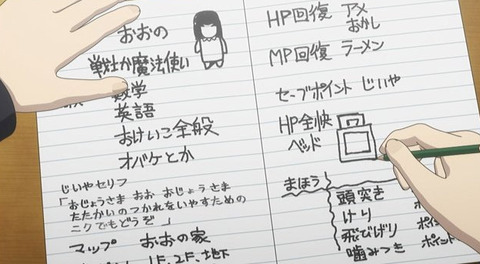 おおの
戦士か魔法使い
数学
英語
おけいこ全般
オバケとか
じいやセリフ
「おじょうさま おお おじょうさま
たたかいのつかれをいやすための
ニクでもどうぞ」
マップ おおの家
1F、2F、地下
HP回復 アメ
おかし
MP回復 ラーメン
セーブポイント じいや
HP全快
ベッド
まほう
頭突き
けり
飛びげり ポイ
噛みつき ポイント